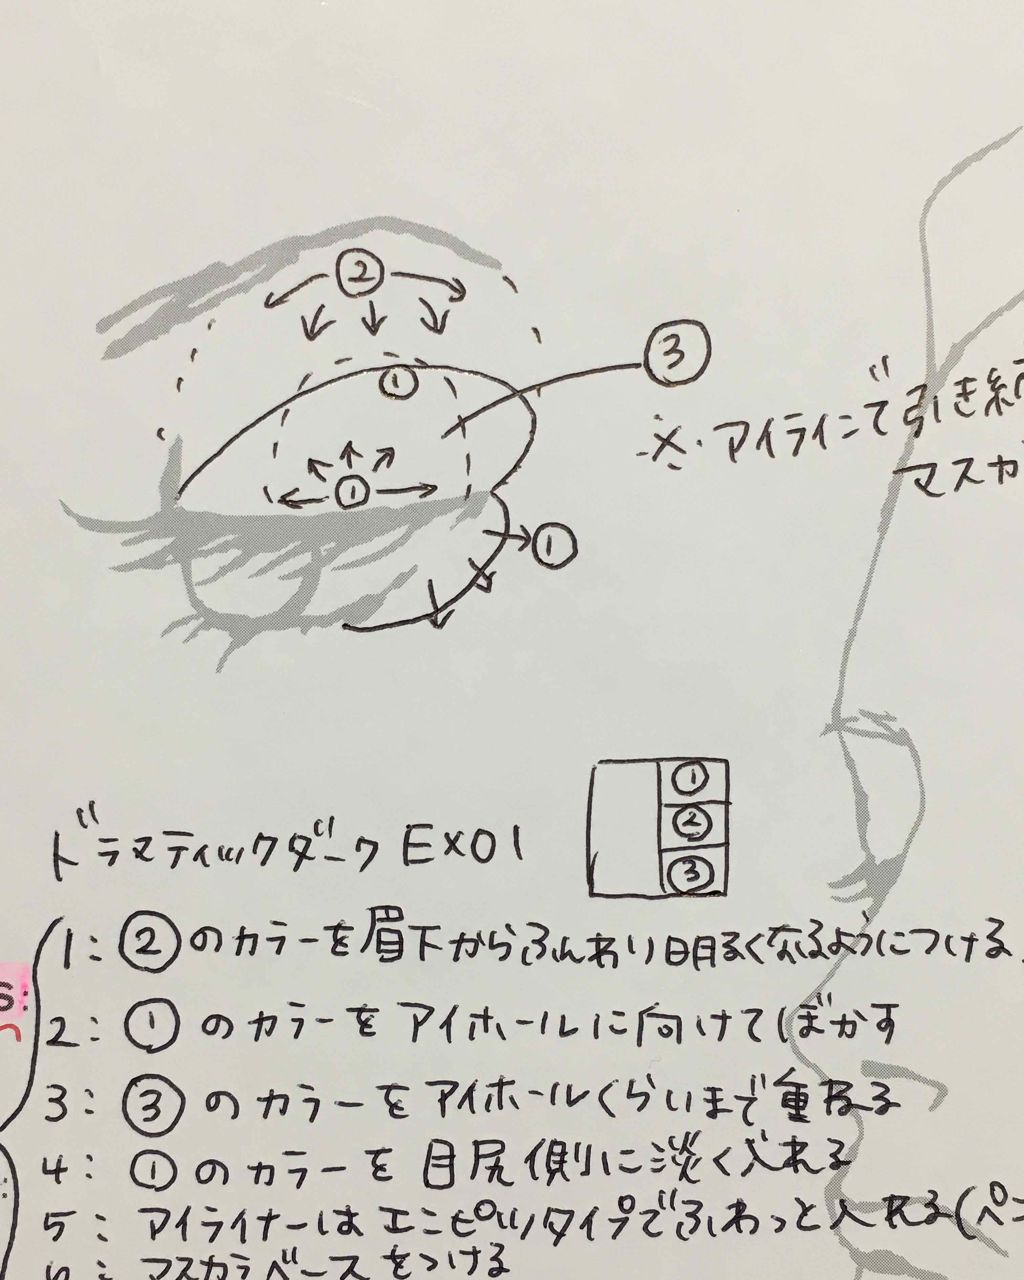 ②
①
③
※・アイラインで引き締
マスカ
①
①
①
②
③
ドラマティックダーク EX01
S:
1：②のカラーを眉下からふんわり明るくなるようにつける
2：①のカラーをアイホールに向けてぼかす
3：③のカラーをアイホールくらいまで重ねる
4：①のカラーを目尻側に淡く入れる
5：アイライナーはエンピツタイプでふわっと入れる(ペン
マスカラベースをつける